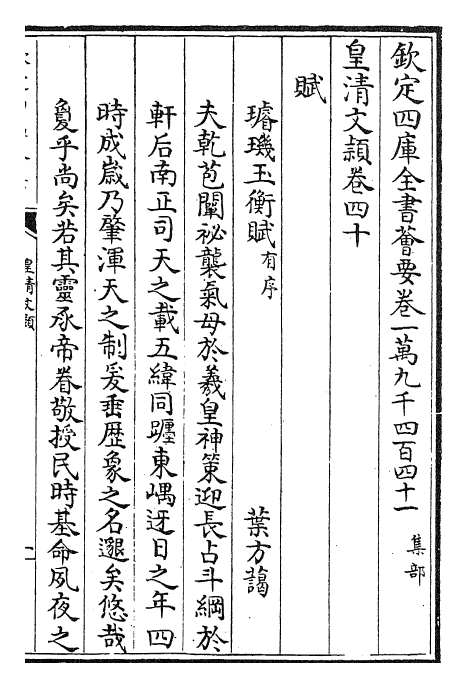 欽定四庫全書薈要卷一萬九千四百四十一 集部
皇清文頴卷四十
賦
璿璣玉衡賦有序 葉方藹
夫乾苞闡祕襲氣母於羲皇神策迎長占斗綱於
軒后南正司天之載五緯同躔東嵎迓日之年四
時成嵗乃肇渾天之制爰垂歴象之名邈矣悠哉
敻乎尚矣若其靈承帝眷敬授民時基命夙夜之
皇清文頴